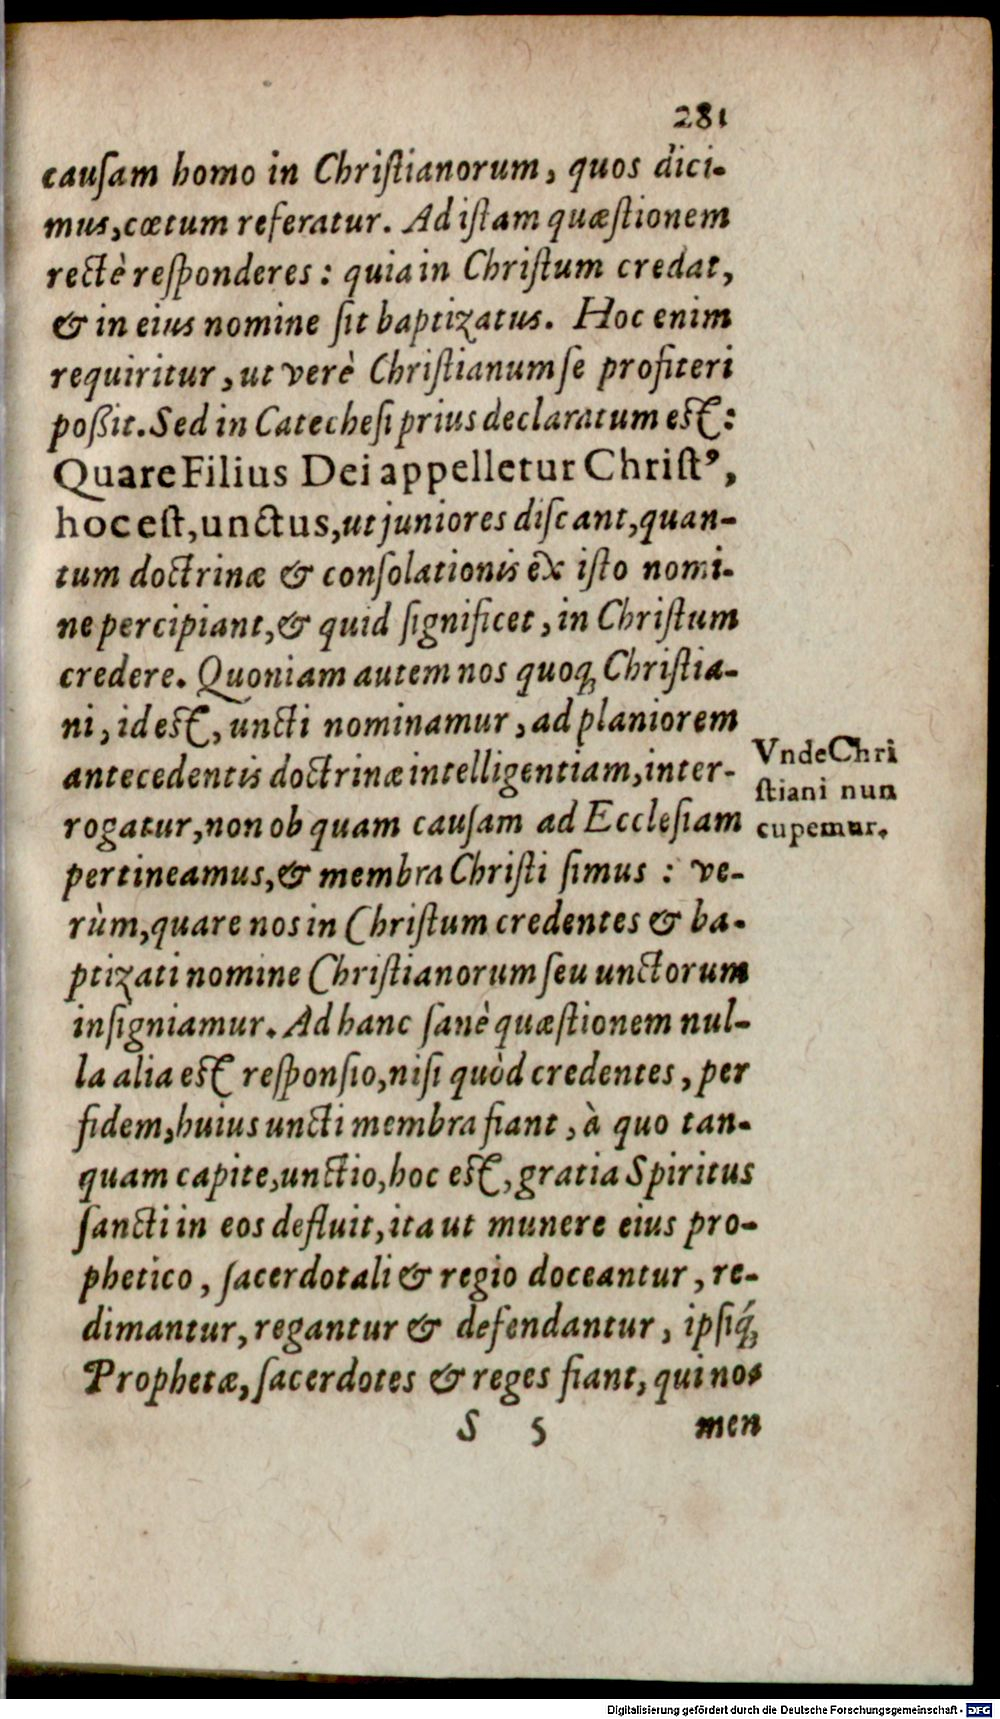 281
cauſam homo in Chriſtianorum, quos dici-
mus, cœtum referatur. Ad iſtam quæſtionem
rectè reſponderes: quia in Chriſtum credat,
& in eius nomine ſit baptizatus. Hoc enim
requiritur, ut verè Chriſtianum ſe profiteri
poßit. Sed in Catecheſi prius declaratum eſt:
Quare Filius Dei appelletur Chriſtꝰ,
hoc eſt, unctus, ut juniores diſcant, quan-
tum doctrinæ & conſolationis ex iſto nomi-
ne percipiant, & quid ſignificet, in Chriſtum
credere. Quoniam autem nos quoq; Chriſtia-
ni, id eſt, uncti nominamur, ad planiorem
antecedentis doctrinæ intelligentiam, inter-
rogatur, non ob quam cauſam ad Eccleſiam
pertineamus, & membra Chriſti ſimus: ve-
rùm, quare nos in Chriſtum credentes & ba-
ptizati nomine Chriſtianorum ſeu unctorum
inſigniamur. Ad hanc ſanè quæſtionem nul-
la alia eſt reſponſio, niſi quòd credentes, per
fidem, huius uncti membra fiant, à quo tan-
quam capite, unctio, hoc eſt, gratia Spiritus
ſancti in eos defluit, ita ut munere eius pro-
phetico, ſacerdotali & regio doceantur, re-
dimantur, regantur & defendantur, ipſiq́;
Prophetæ, ſacerdotes & reges fiant, qui nos
S 5 men
Vnde Chri
ſtiani nun
cupemur.
Digitalisierung gefördert durch die Deutsche Forschungsgemeinschaft - DFG